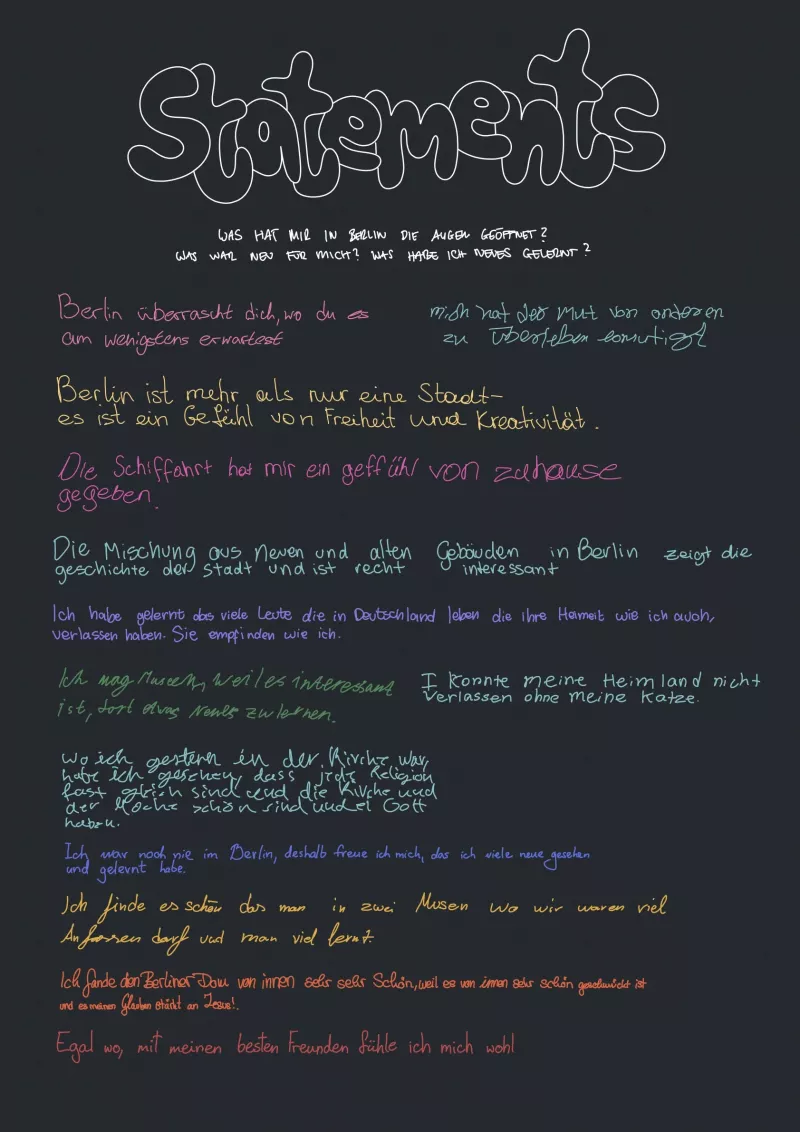 Statements
WAS HAT MIR IN BERLIN DIE AUGEN GEÖFFNET?
WAS WAR NEU FÜR MICH? WAS HABE ICH NEUES GELERNT?
Berlin überrascht dich, wo du es
am wenigstens erwartest
mich hat der Mut von anderen
zu überleben ermutigt
Berlin ist mehr als nur eine Stadt-
es ist ein Gefühl von Freiheit und Kreativität.
Die Schiffahrt hat mir ein geffühl von zuhause
gegeben.
Die Mischung aus neuen und alten Gebäuden in Berlin zeigt die
geschichte der Stadt und ist recht interessant
Ich habe gelernt das viele Leute die in Deutschland leben die Ihre Heimeit wie ich auch,
verlassen haben. Sie empfinden wie ich.
Ich mag Museen, weil es interessant
ist, dort etwas Neues zu lernen.
I konnte meine Heimland nicht
verlassen ohne meine Katze.
wo ich gestern in der Kirche war,
habe ich gesehen, dass jede Religion
fast gleich sind und die Kirche und
der Moche schön sind und ei Gott
haben.
Ich war noch nie im Berlin, deshalb freue ich mich, das ich viele neue gesehen
und gelernt habe.
Ich finde es schön das man in zwei Musen wo wir waren viel
Anfassen darf und man viel lernt.
Ich fande den Berliner Dom von innen sehr sehr Schön, weil es von innen sehr schön geschmückt ist
und es meinen Glauben stärkt an Jesus!.
Egal wo, mit meinen besten Freunden fühle ich mich wohl